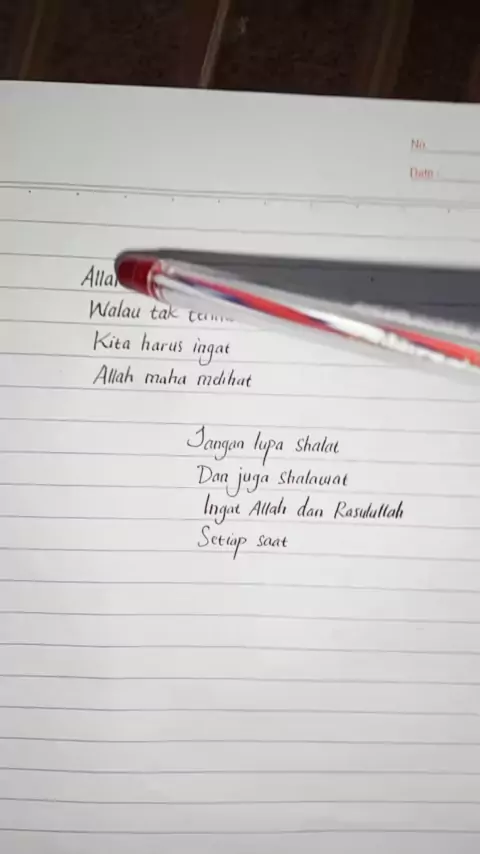 No
Date :
Allah
Walau tak
Kita harus ingat
Allah maha melihat
Jangan lupa shalat
Dan juga shalawat
Ingat Allah dan Rasulullah
Setiap saat